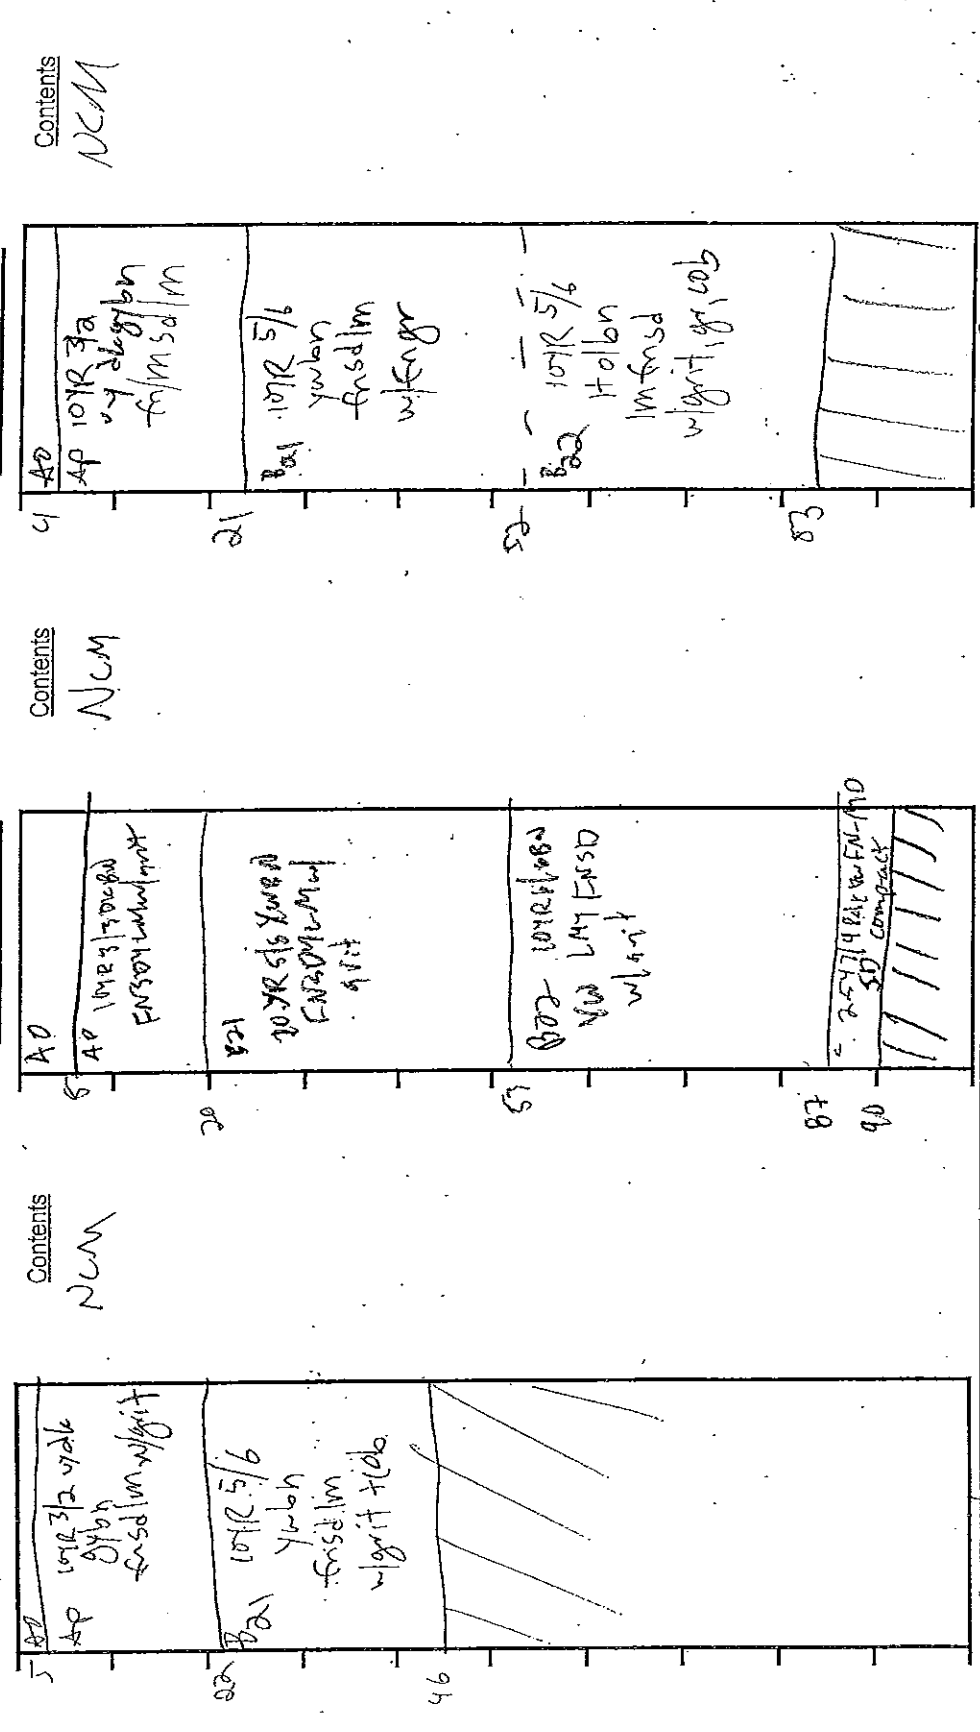 Contents
NCM
5
A0
Ap 10YR 3/2 vydk
gybn
fnsdlm w/grit
22
B21 10YR 5/6
ywbn
fnsdlm
w/grit + cob
46
Contents
NCM
8
A0
AP 10YR3/3 DKBN
FNSDYLM w/grit
20
B21
10YR5/6 YWBN
FNSDYLM w/
grit
53
B22 10YR
LMY FNSD
w/grit
87
2.5Y7/4 FN-MD
SD compact
90
Contents
NCM
4
A0
AP 10YR 3/2
vy dkgybn
fn/msdlm
21
B21 10YR 5/6
ywbn
fnsdlm
w/fngr
52
B22 10YR 5/6
ltolbn
lmfnsd
w/grit, gr, cob
83